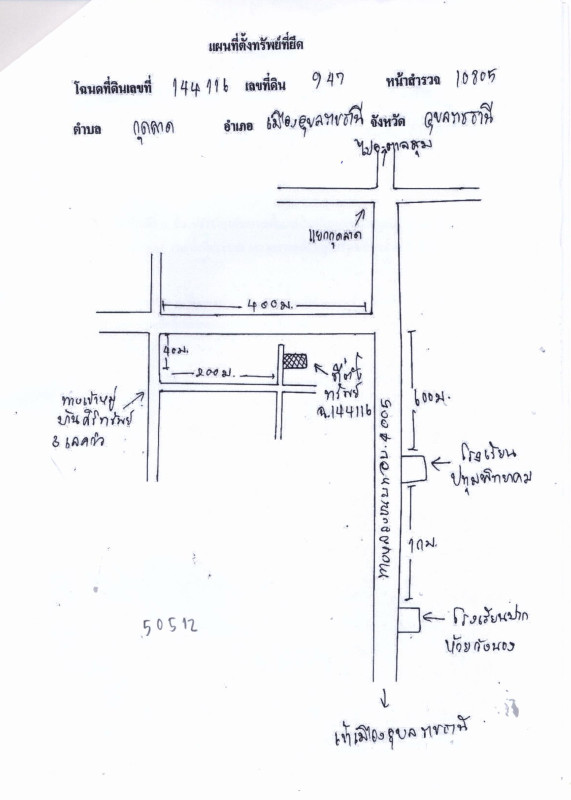 แผนที่ตั้งทรัพย์ที่ยึด
โฉนดที่ดินเลขที่ 144116 เลขที่ดิน 947 หน้าสำรวจ 10805
ตำบล กุดลาด อำเภอ เมืองอุบลราชธานี จังหวัด อุบลราชธานี
ไปอ.ตาลสุม
แยกกุดลาด
400ม.
40ม.
200ม.
ที่ตั้ง
ทรัพย์
ฉ.144116
ทางเข้าหมู่
บ้านศิริทรัพย์
3 เลควิว
600ม.
โรงเรียน
ปทุมพิทยาคม
1กม.
โรงเรียนปาก
ห้วยวังนอง
50512
เข้าเมืองอุบลราชธานี